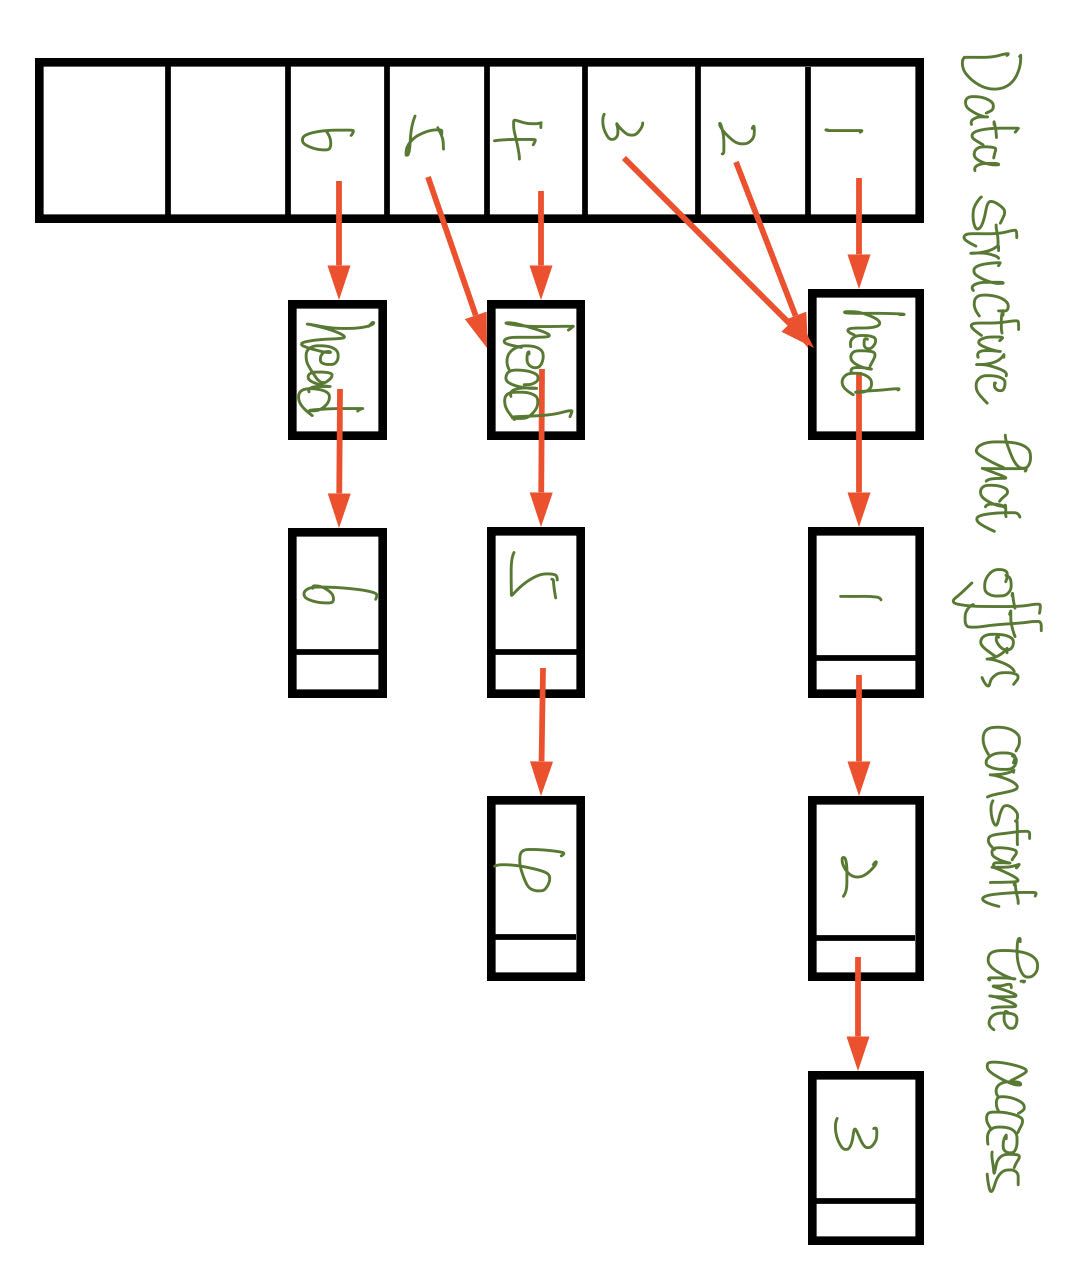 Data structure that offers constant time access
1 head 1 2 3
2
3
4 head 5 4
5
6 head 6